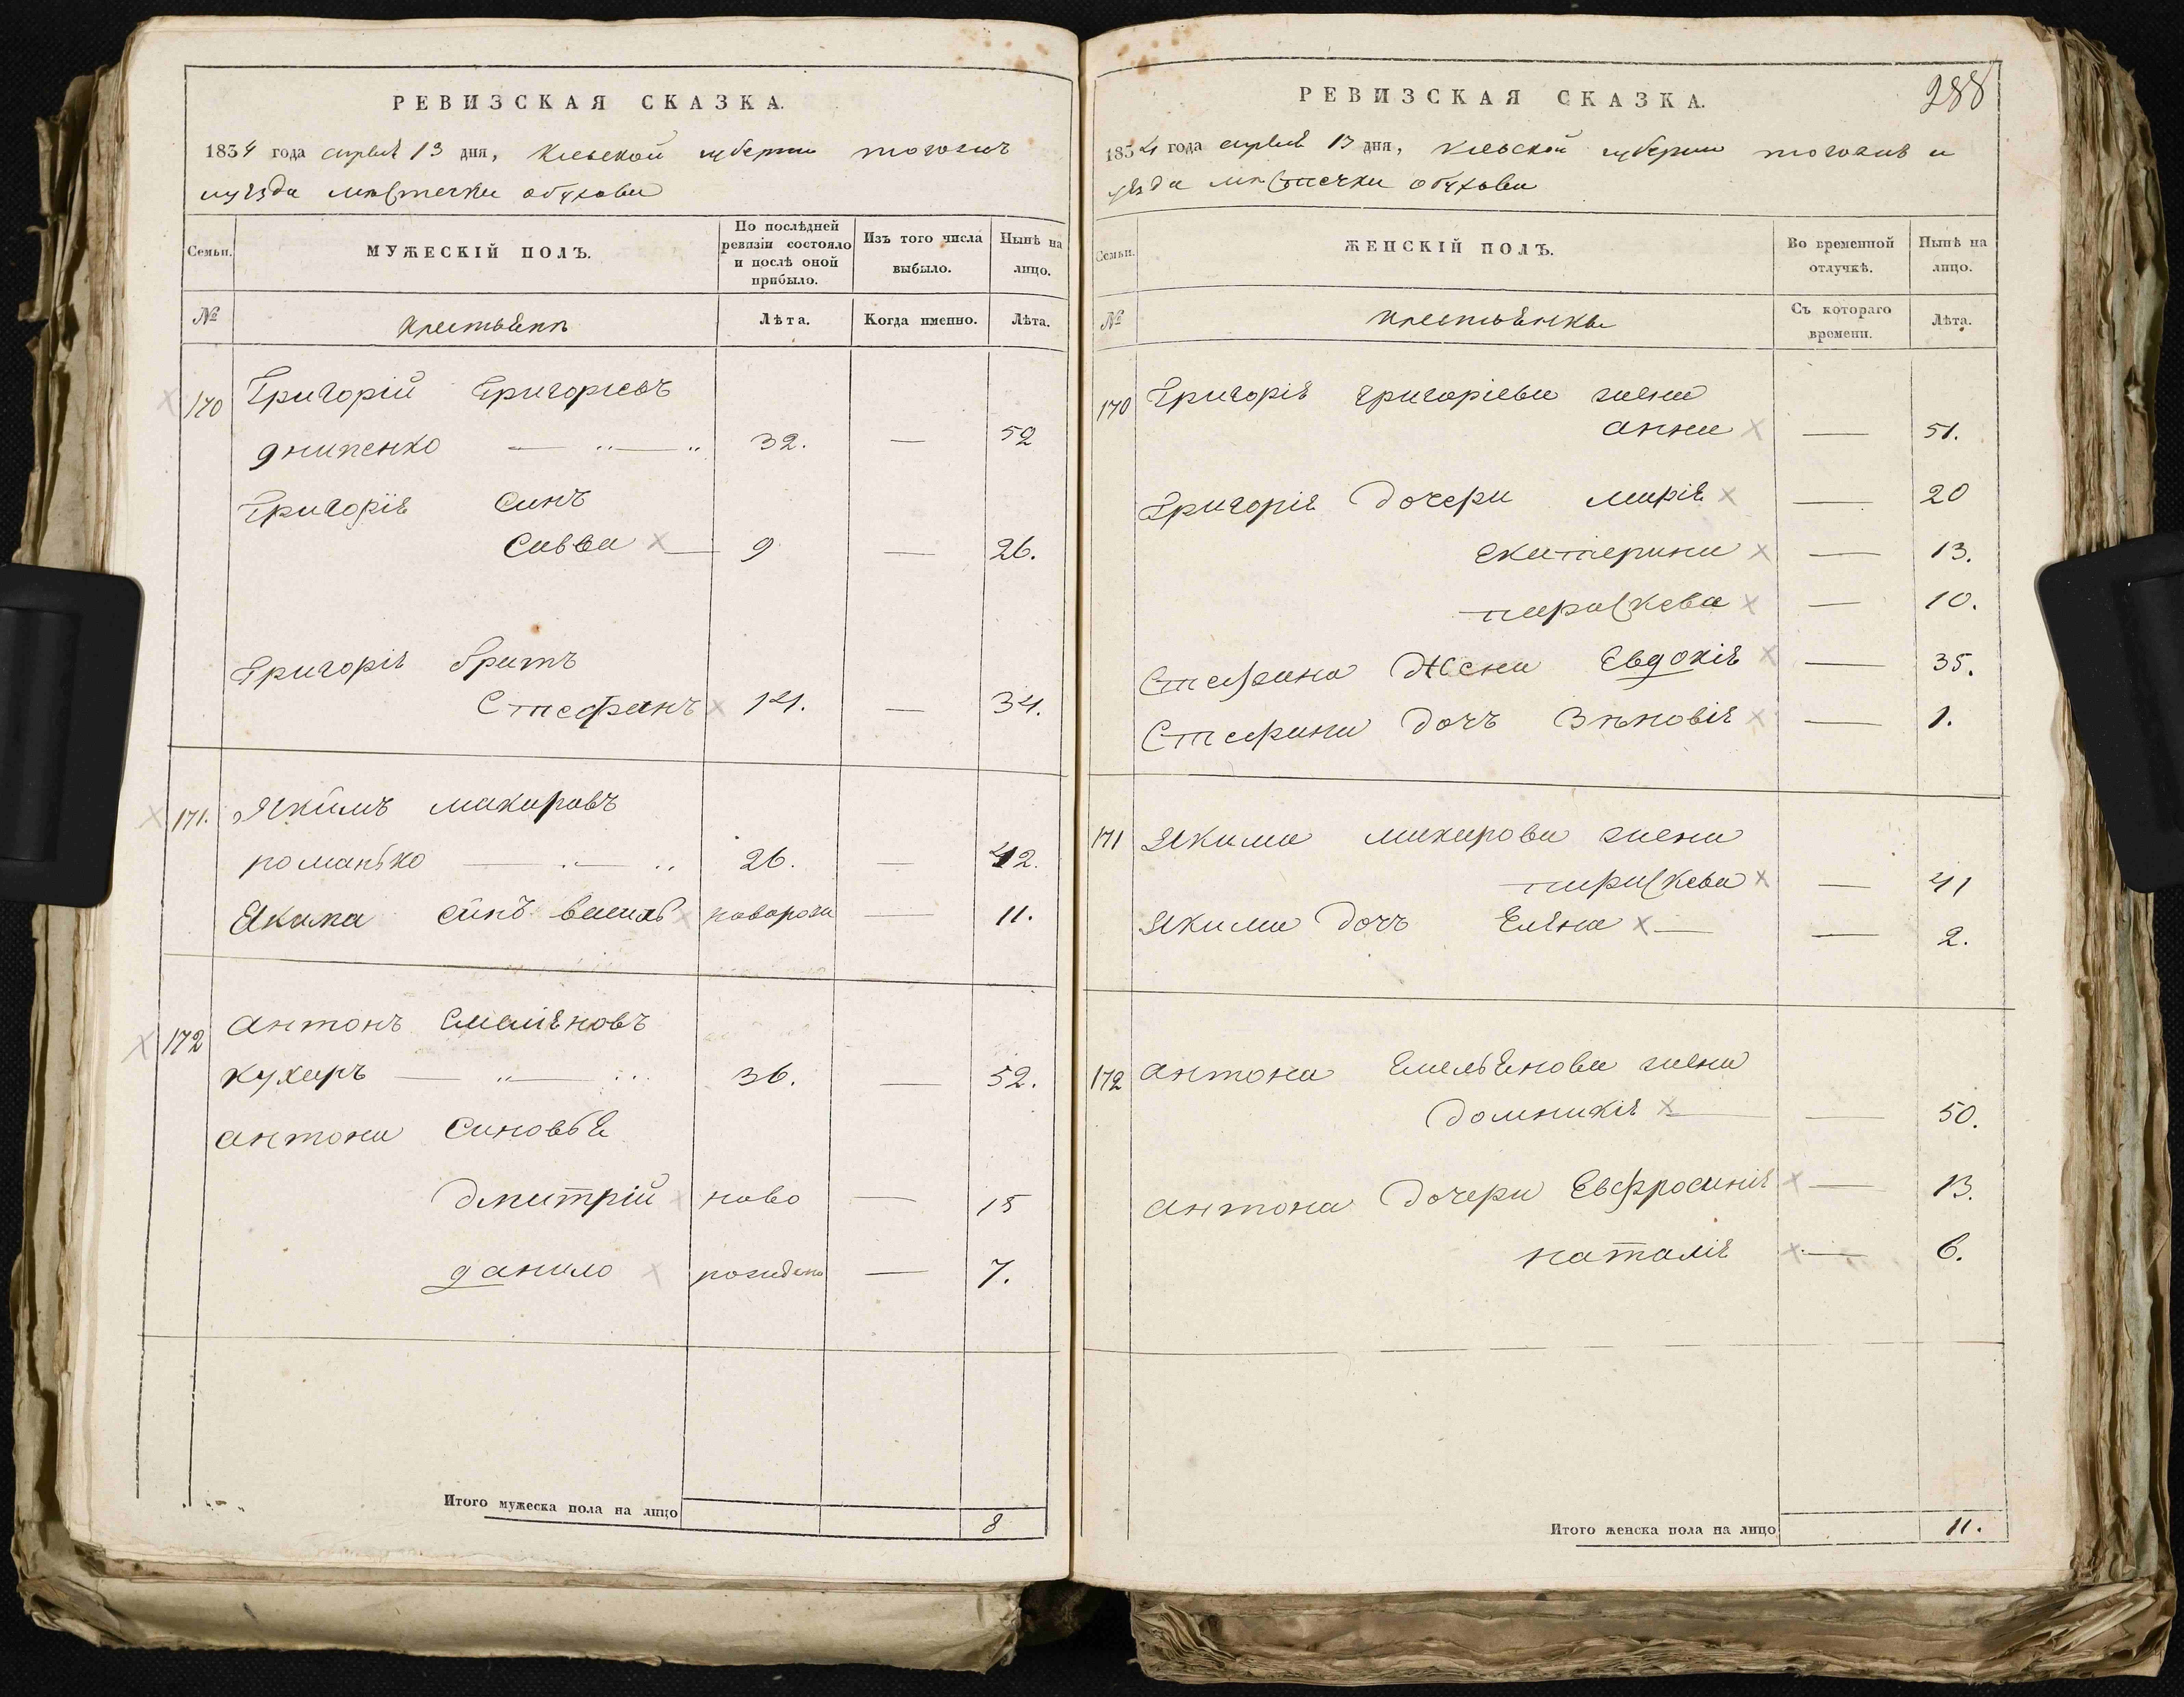 РЕВИЗСКАЯ СКАЗКА.
1834 года апреля 13 дня, Киевской губернии тогожъ
уѣзда мѣстечка обухова
Семьи. МУЖЕСКІЙ ПОЛЪ. По послѣдней ревизіи состояло и послѣ оной прибыло. Изъ того числа выбыло. Нынѣ на лицо.
№ крестьянѣ Лѣта. Когда именно. Лѣта.
170 Григорій Григорьевъ
днипенко — „ — „ 32. — 52
Григорія синъ
Савва — 9 — 26.
Григорія братъ
Стефанъ 14. — 34.
171. Якимъ макаровъ
романько — „ — „ 26. — 42.
Якима синъ василь новорож — 11.
172 Антонъ Емеляновъ
кухаръ — „ — „ 36. — 52.
антона синовья
дмитрій ново — 15
данило рождено — 7.
Итого мужеска пола на лицо 8
288
РЕВИЗСКАЯ СКАЗКА.
1834 года апреля 13 дня, Киевской губернии тогожъ у
уѣзда мѣстечка обухова
Семьи. ЖЕНСКІЙ ПОЛЪ. Во временной отлучкѣ. Нынѣ на лицо.
№ крестьянки Съ котораго времени. Лѣта.
170 Григорія григоріева жена
анна — 51.
Григорія дочери марія — 20
екатерина — 13.
параскева — 10.
Стефана жена Евдокія — 35.
Стефана дочъ Зѣновія — 1.
171 Якима макарова жена
параскева — 41
Якима дочъ Елена — — 2.
172 антона Емельянова жена
домникія — — 50.
антона дочери Евфросинія — 13.
наталія — 6.
Итого женска пола на лицо 11.